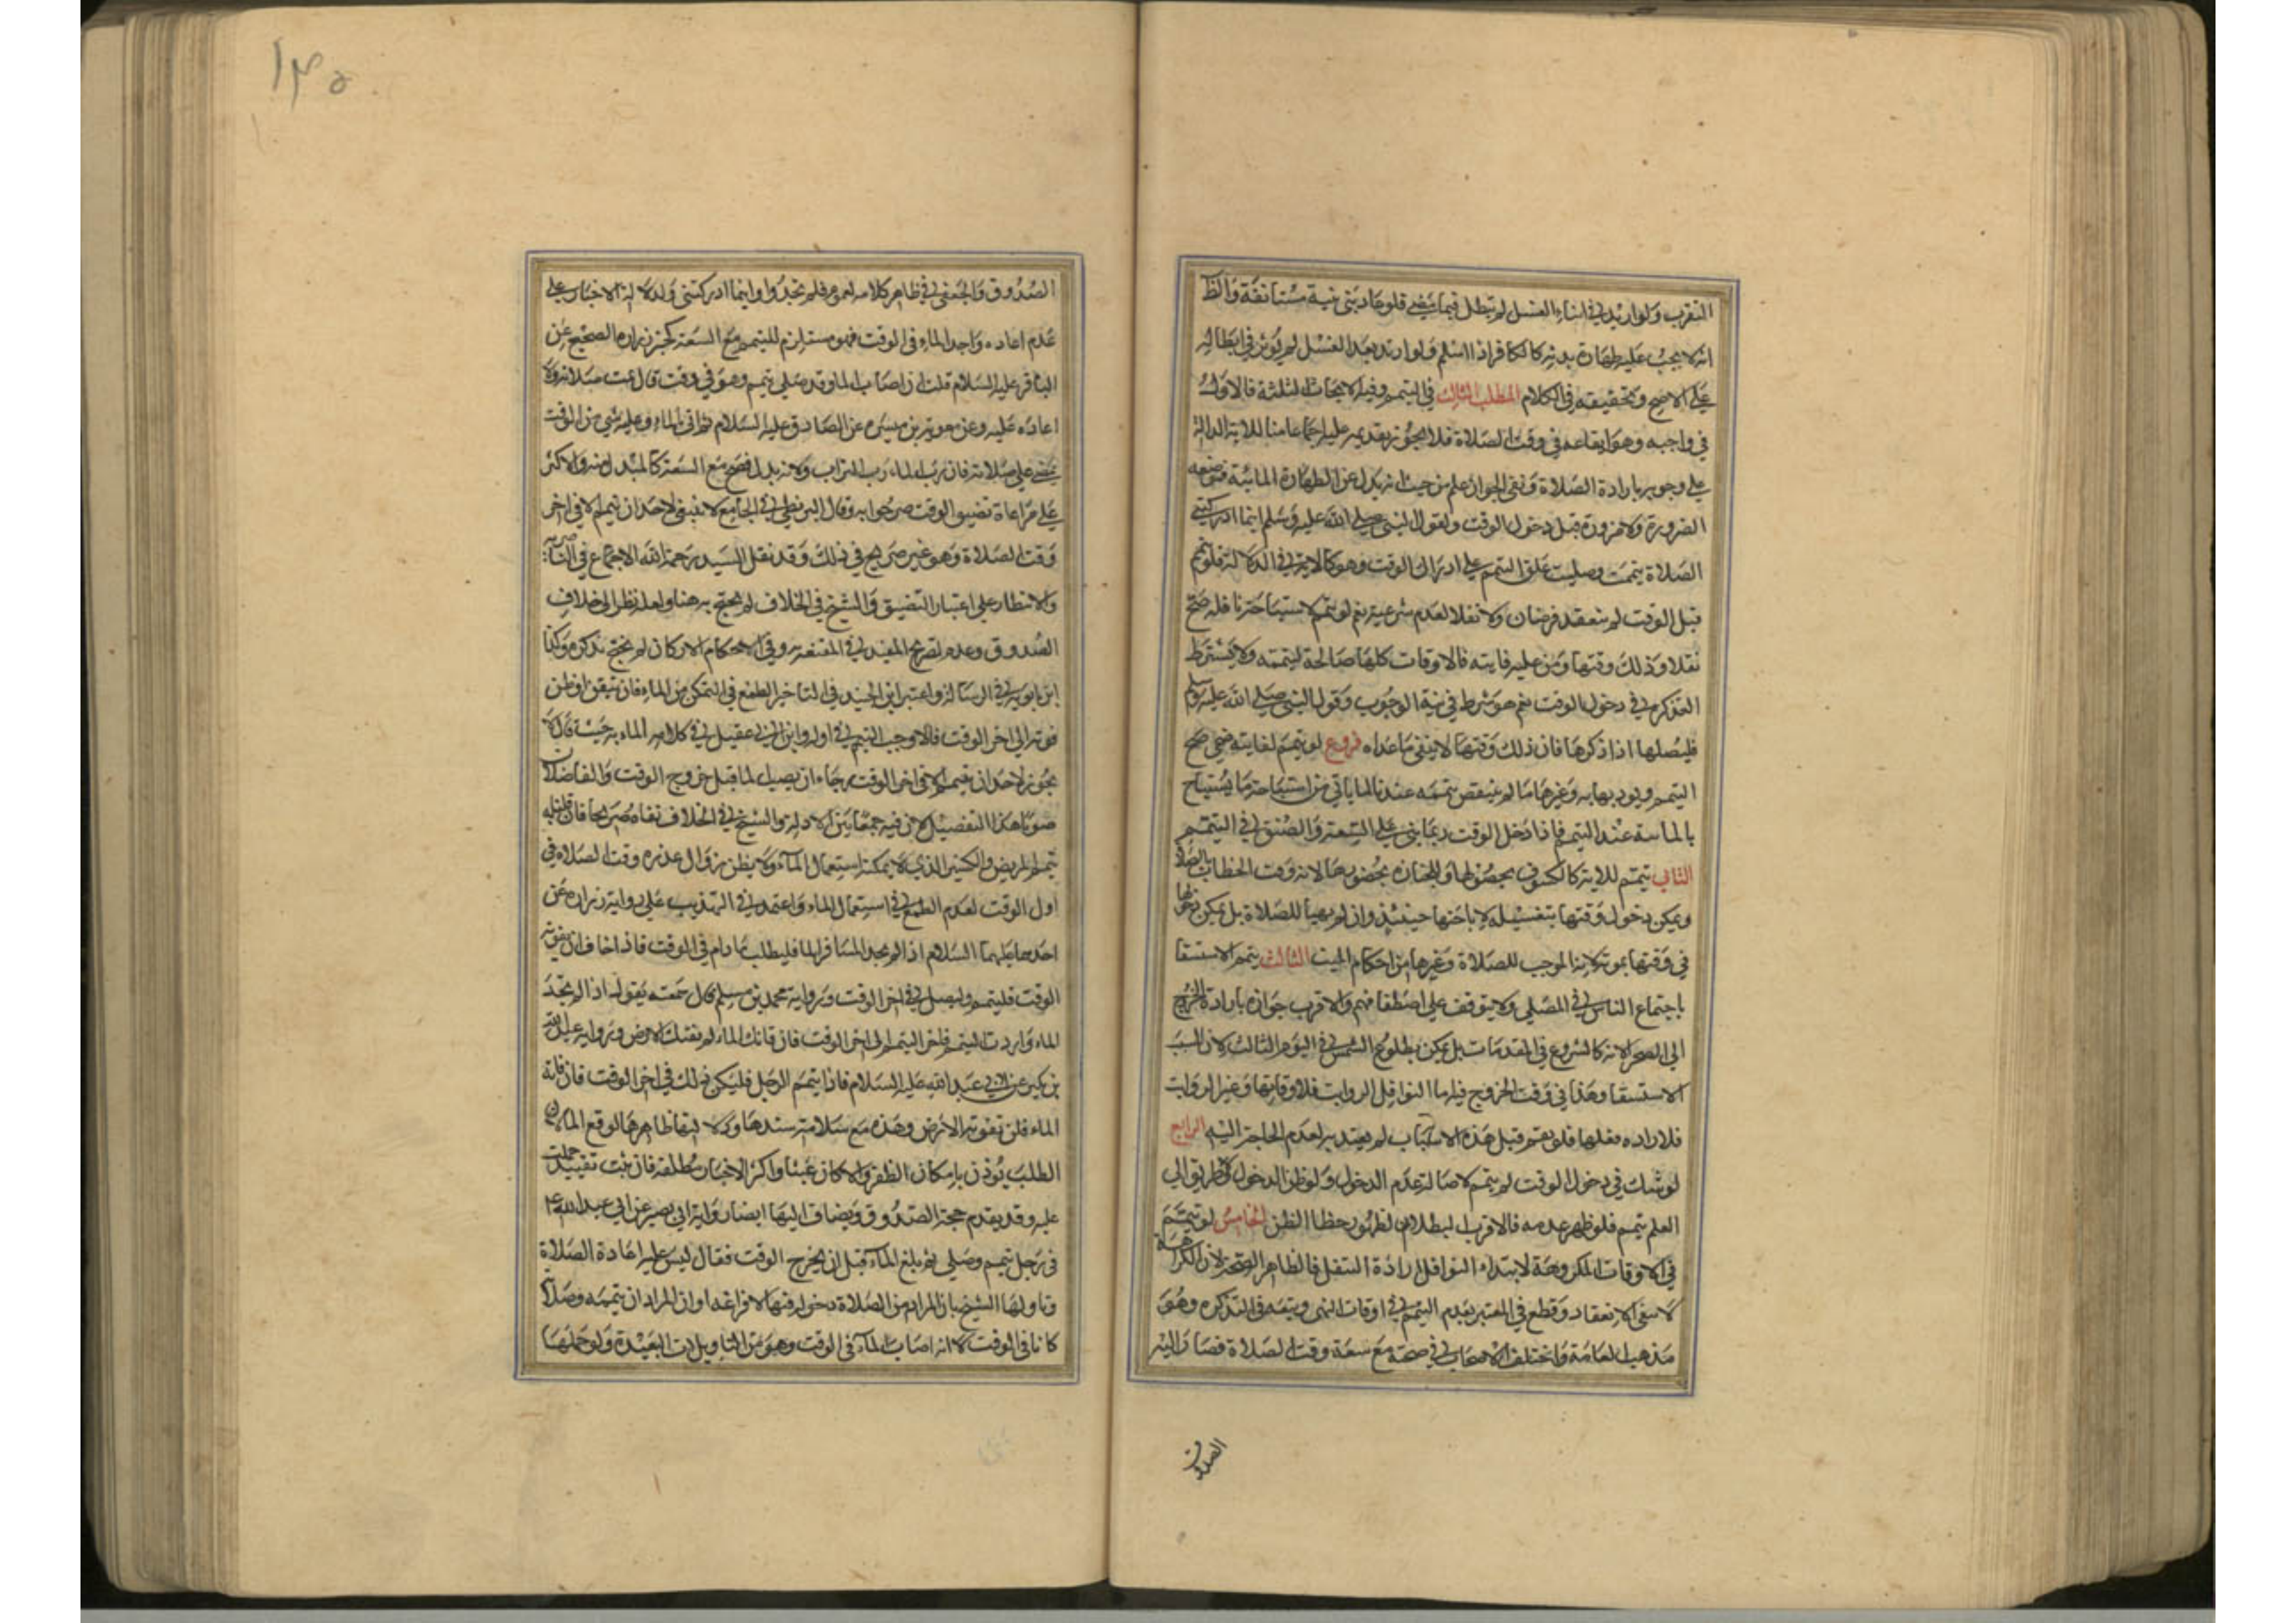 التقرب ولو ارتد في اثناء الغسل لم تبطل فيما مضى فلو عاد بنى بنية مستانفة والظ
انه لا يجب عليه طهارة بدنه كالكافر اذا اسلم ولو ارتد بعد الغسل لم يؤثر في ابطاله
على الاصح وتحقيقه في الكلام المطلب الثالث في التيمم وفيه الابحاث الثلثة فالاول
في واجبه وهو ايقاعه في وقت الصلاة فلا يجوز تقديمه عليه اجماعا منا للاية الدالة
على وجوبه بارادة الصلاة ونفى الجواز علم من حيث انه بدل عن الطهارة المائية فموضعه
الضرورة ولا ضرورة قبل دخول الوقت ولقول النبي صلى الله عليه وسلم اينما ادركتني
الصلاة تيممت وصليت علق التيمم على ادراك الوقت وهو كالاية في الدلالة فلو تيمم
قبل الوقت لم ينعقد فرضان ولا نفلا لعدم شرعيته نعم لو تيمم لاستباحة نافلة صح
نفلا وذلك وقتها ومن عليه فايته فالاوقات كلها صالحة لتيممه ولا يشترط
التذكر في دخول الوقت نعم هو شرط في نية الوجوب وقول النبي صلى الله عليه وسلم
فليصلها اذا ذكرها فان ذلك وقتها لا ينفى ماعداه فروع لو تيمم لفايته ضحى صح
التيمم ويودبها به وغيرها ما لم ينتقض تيممه عندنا لما ياتي من استباحة ما يستباح
بالمائية عند التيمم فاذا دخل الوقت ربما بنى على السعة والضيق في التيمم
الثاني تيمم للاية كالكسوف بحصولها وللجنازة بحضورها لانه وقت الخطاب بالصلاة
ويمكن دخول وقتها بتغسيله لاباحتها حينئذ وان لم يهيأ للصلاة بل يمكن دخولها
في وقتها بموته لانه الموجب للصلاة وغيرها من احكام الميت الثالث يتيمم للاستسقا
باجتماع الناس في المصلى ولا يتوقف على اصطفافهم والاقرب جوازه بارادة الخروج
الى الصحرا لانه كالشروع في المقدمات بل يمكن بطلوع الشمس في اليوم الثالث لان السبب
الاستسقا وهذا في وقت الخروج فيه اما النوافل الرواتب فلاوقاتها وغير الرواتب
فلارادة فعلها فلو تيمم قبل هذه الاسباب لم يعتد به لعدم الحاجة اليه الرابع
لو شك في دخول الوقت لم يتيمم لاصالة عدم الدخول ولو ظن الدخول ولا طريق الى
العلم تيمم فلو ظهر عدمه فالاقرب البطلان لظهور خطا الظن الخامس لو تيمم
في الاوقات المكروهة لابتداء النوافل ارادة التنفل فالظاهر الصحة لان الكراهية
لا تنفى الانعقاد وقطع في المعتبر بعدم التيمم في اوقات النهى وتبعه في التذكره وهو
مذهب العامة واختلف الاصحاب في صحته مع سعة وقت الصلاة فصار اليه
الصدوق
١٣٥
الصدوق والجعفي في ظاهر كلامه لعموم فلم تجدوا واينما ادركتني ولدلالة الاخبار على
عدم اعادة واجد الماء في الوقت فهو مستلزم للتيمم مع السعة كخبر زرارة الصحيح عن
الباقر عليه السلام قلت ان اصاب الماء وقد صلى بتيمم وهو في وقت قال تمت صلاته ولا
اعادة عليه وعن معوية بن ميسرة عن الصادق عليه السلام ثم اتى بالماء وعليه شي من الوقت
يمضى على صلاته فان رب الماء رب التراب ولانه بدل فصح مع السعة كالمبدل منه والاكثر
على مراعاة تضيق الوقت صرحوا به وقال البزنطي في الجامع لا ينبغى لاحد ان يتيمم الا في اخر
وقت الصلاة وهو غير صريح في ذلك وقد نقل السيد رحمة الله الاجماع في الناصرية
والانتظار على اعتبار التضيق والشيخ في الخلاف لم يحتج به هنا ولعله نظر الى خلاف
الصدوق وعدم تصريح المفيد في المقنعة به وفي الاحكام الاركان لم يحتج بذكره وكذا
ابن بابويه في الرسالة واعتبر ابن الجنيد في التاخير الطمع في التمكن من الماء فان تيقن او ظن
فوته الى اخر الوقت فالاوجب التيمم في اوله وابن ابي عقيل في كلامه الماء به حيث قال لا
يجوز لاحد ان يتيمم الا في اخر الوقت رجاء ان يصيل لما قبل خروج الوقت والفاضلان
صوبا هذا التفصيل لان فيه جمعا بين الادلة والشيخ في الخلاف نفاه صريحا فان قلنا به
تيمم المريض والكسير الذي لا يمكنه استعمال الماء ولا يظن زوال عذره وقت الصلاة في
اول الوقت لعدم الطمع في استعمال الماء واعتمد في التهذيب على رواية زرارة عن
احدهما عليهما السلام اذا لم يجد المسافر الماء فليطلب ما دام في الوقت فاذا خاف ان يفوته
الوقت فليتيمم وليصل في اخر الوقت ورواية محمد بن مسلم قال سمعته يقول اذا لم تجد
الماء واردت التيمم فاخر التيمم الى اخر الوقت فان فاتك الماء لم يفتك الارض ورواية عبد الله
بن بكير عن ابي عبد الله عليه السلام فاذا تيمم الرجل فليكن ذلك في اخر الوقت فان فاته
الماء فلن تفوته الارض وهذه مع سلامة سندها ودلالتها ظاهرها توقع الماء لان
الطلب يؤذن بامكان الظفر والا كان عبثا واكثر الاخبار مطلقة فان ثبت تقييد حملت
عليه وقد يقدم حجة الصدوق ويضاف اليها ايضا رواية ابي بصير عن ابي عبد الله ع
في رجل تيمم وصلى ثم بلغ الماء قبل ان يخرج الوقت فقال ليس عليه اعادة الصلاة
وتاولها الشيخ بان المراد من الصلاة دخول وقتها لا فراغه او ان المراد ان تيممه وصلاته
كانا في الوقت لا انه اصاب الماء في الوقت وهو من التاويلات البعيدة ولو حملها